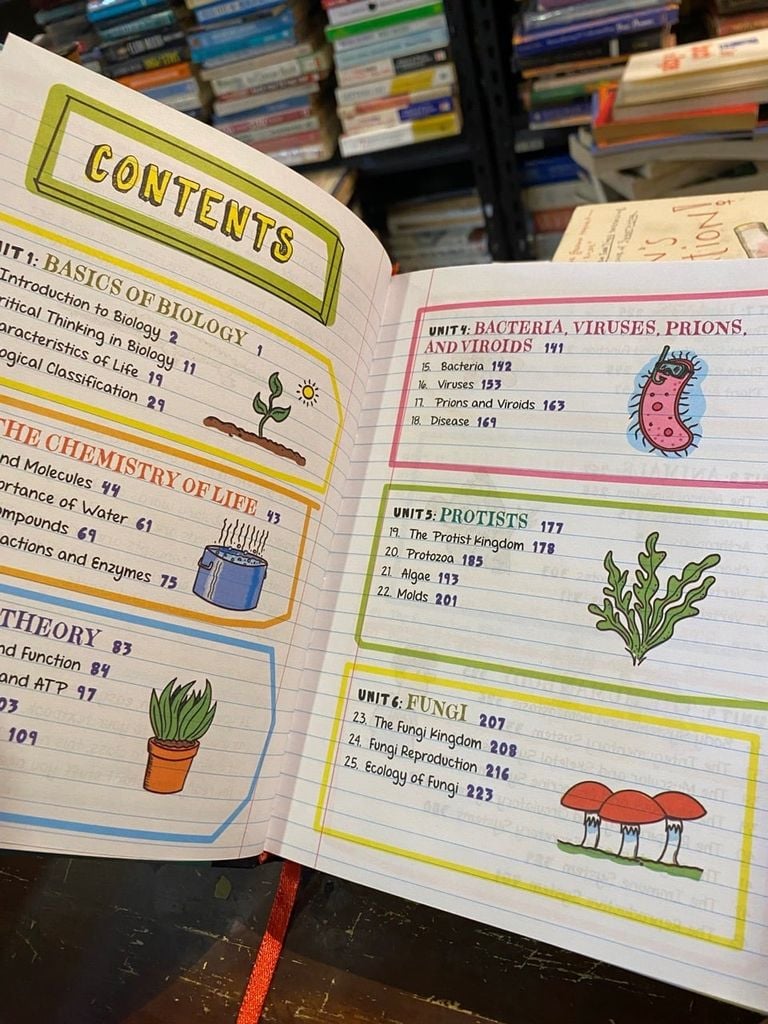 CONTENTS
1: BASICS OF BIOLOGY 1
Introduction to Biology 2
Thinking in Biology 11
of Life 19
Classification 29
THE CHEMISTRY OF LIFE 43
Molecules 44
of Water 61
69
and Enzymes 75
THEORY 83
Function 84
and ATP 97
03
109
UNIT 4: BACTERIA, VIRUSES, PRIONS,
AND VIROIDS 141
15. Bacteria 142
16. Viruses 153
17. Prions and Viroids 163
18. Disease 169
UNIT 5: PROTISTS 177
19. The Protist Kingdom 178
20. Protozoa 185
21. Algae 193
22. Molds 201
UNIT 6: FUNGI 207
23. The Fungi Kingdom 208
24. Fungi Reproduction 216
25. Ecology of Fungi 223